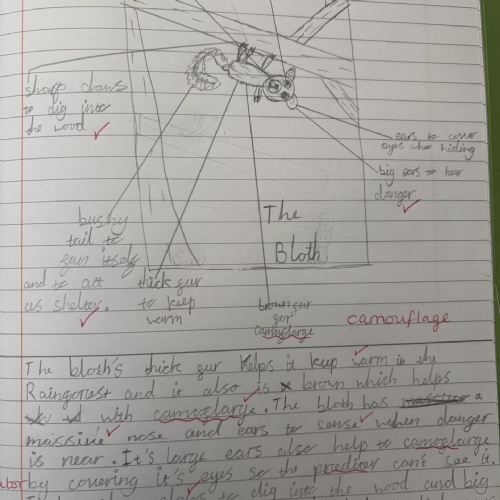 sharp claws
to dig into
the wood
ears to cover
eyes when hiding
big ears to hear
danger
bushy
tail to
and to act
as shelter.
thick fur
to keep
warm
The
Bloth
brown fur
for
camoflarge
camouflage
The bloth's thick fur helps it keep warm in the
Rainforest and it also is brown which helps
with camoflarge. The bloth has massive a
massive nose and ears to sense when danger
is near. It's large ears also help to camoflarge
by covering it's eyes so the prediter can't see it.
to dig into the wood and big